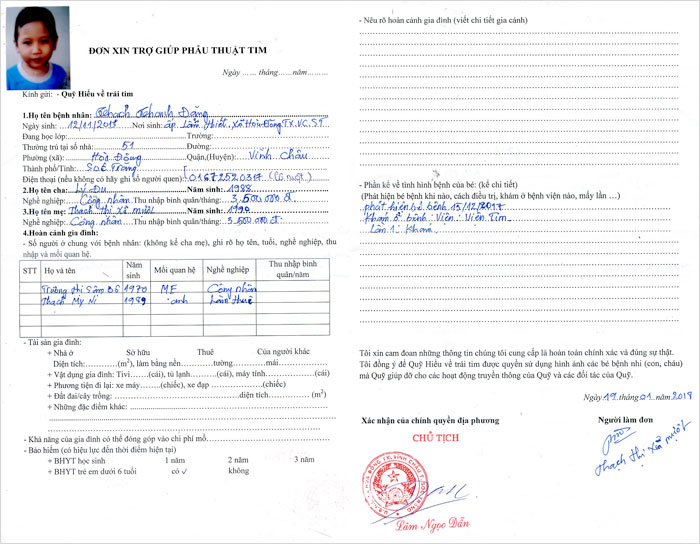 ĐƠN XIN TRỢ GIÚP PHẪU THUẬT TIM
Ngày ...... tháng......năm.........
Kính gửi: - Quỹ Hiểu về trái tim
1.Họ tên bệnh nhân: Thạch Thanh Đặng
Ngày sinh: 12/11/2015 Nơi sinh: ấp Lẫm Thiết Xã Hòa Đông TX.VC.ST
Đang học lớp: Trường:
Thường trú tại số nhà: 51 Đường:
Phường (xã): Hòa Đông Quận,(Huyện): Vĩnh Châu
Thành phố/Tỉnh: Sóc Trăng
Điện thoại (nếu không có hãy ghi số người quen): 01672520317
2.Họ tên cha: Lý Đu Năm sinh: 1988
Nghề nghiệp: Công nhân Thu nhập bình quân/tháng: 3.500.000 đ
3.Họ tên mẹ: Thạch Thị Xà mười Năm sinh: 1990
Nghề nghiệp: Công nhân Thu nhập bình quân/tháng: 3.500.000 đ
4.Hoàn cảnh gia đình:
- Số người ở chung với bệnh nhân: (không kể cha mẹ), ghi rõ họ tên, tuổi, nghề nghiệp, thu
nhập và mối quan hệ.
STT Họ và tên Năm sinh Mối quan hệ Nghề nghiệp Thu nhập bình quân/năm
Trương Thị Sâm 1970 MẸ Công nhân
Thạch My Ni 1989 anh Làm thuê
- Tài sản gia đình:
+ Nhà ở Sở hữu Thuê Của người khác
Diện tích:............(m²), làm bằng nền............tường............mái............
+ Vật dụng gia đình: Tivi......(cái), tủ lạnh............(cái), máy tính............(cái)
+ Phương tiện đi lại: xe máy......(chiếc), xe đạp ............(chiếc)
+ Đất đai/cây trồng: ............diện tích ............ (m²)
+ Những đặc điểm khác:
- Khả năng của gia đình có thể đóng góp vào chi phí mổ
- Bảo hiểm (có hiệu lực đến thời điểm hiện tại)
+ BHYT học sinh 1 năm 2 năm 3 năm
+ BHYT trẻ em dưới 6 tuổi có ✓ không
- Nêu rõ hoàn cảnh gia đình (viết chi tiết gia cảnh)
- Phần kể về tình hình bệnh của bé: (kể chi tiết)
(Phát hiện bé bệnh khi nào, cách điều trị, khám ở bệnh viện nào, mấy lần ...)
phát hiện bé bệnh 15/12/2017
Khám ở bệnh viện: Viện Tim
Lần 1: Khám
Tôi xin cam đoan những thông tin chúng tôi cung cấp là hoàn toàn chính xác và đúng sự thật.
Tôi đồng ý để Quỹ Hiểu về trái tim được quyền sử dụng hình ảnh các bé bệnh nhi (con, cháu)
mà Quỹ giúp đỡ cho các hoạt động truyền thông của Quỹ và các đối tác của Quỹ.
Ngày 19 tháng 01 năm 2018
Xác nhận của chính quyền địa phương Người làm đơn
CHỦ TỊCH
Thạch Thị Xà mười
Lâm Ngọc Dẫn